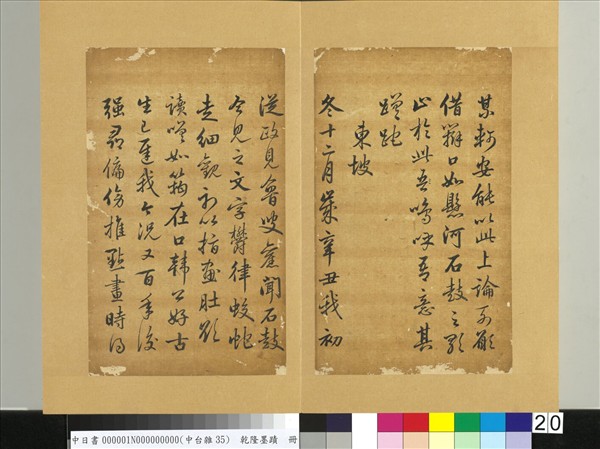 某軻安能以此上論列願
借辯口如懸河石鼓之歌
止於此吾嗚呼吾意其
蹉跎
東坡
冬十二月歲辛丑我初
從政見魯叟舊聞石鼓
今見之文字欝律蛟蛇
走細觀初以指畫肚欲
讀嗟如箝在口韓公好古
生已遲我今況又百年後
強尋偏傍推點畫時得
中日書 000001N000000000(中台雜 35) 乾隆墨蹟 冊
20